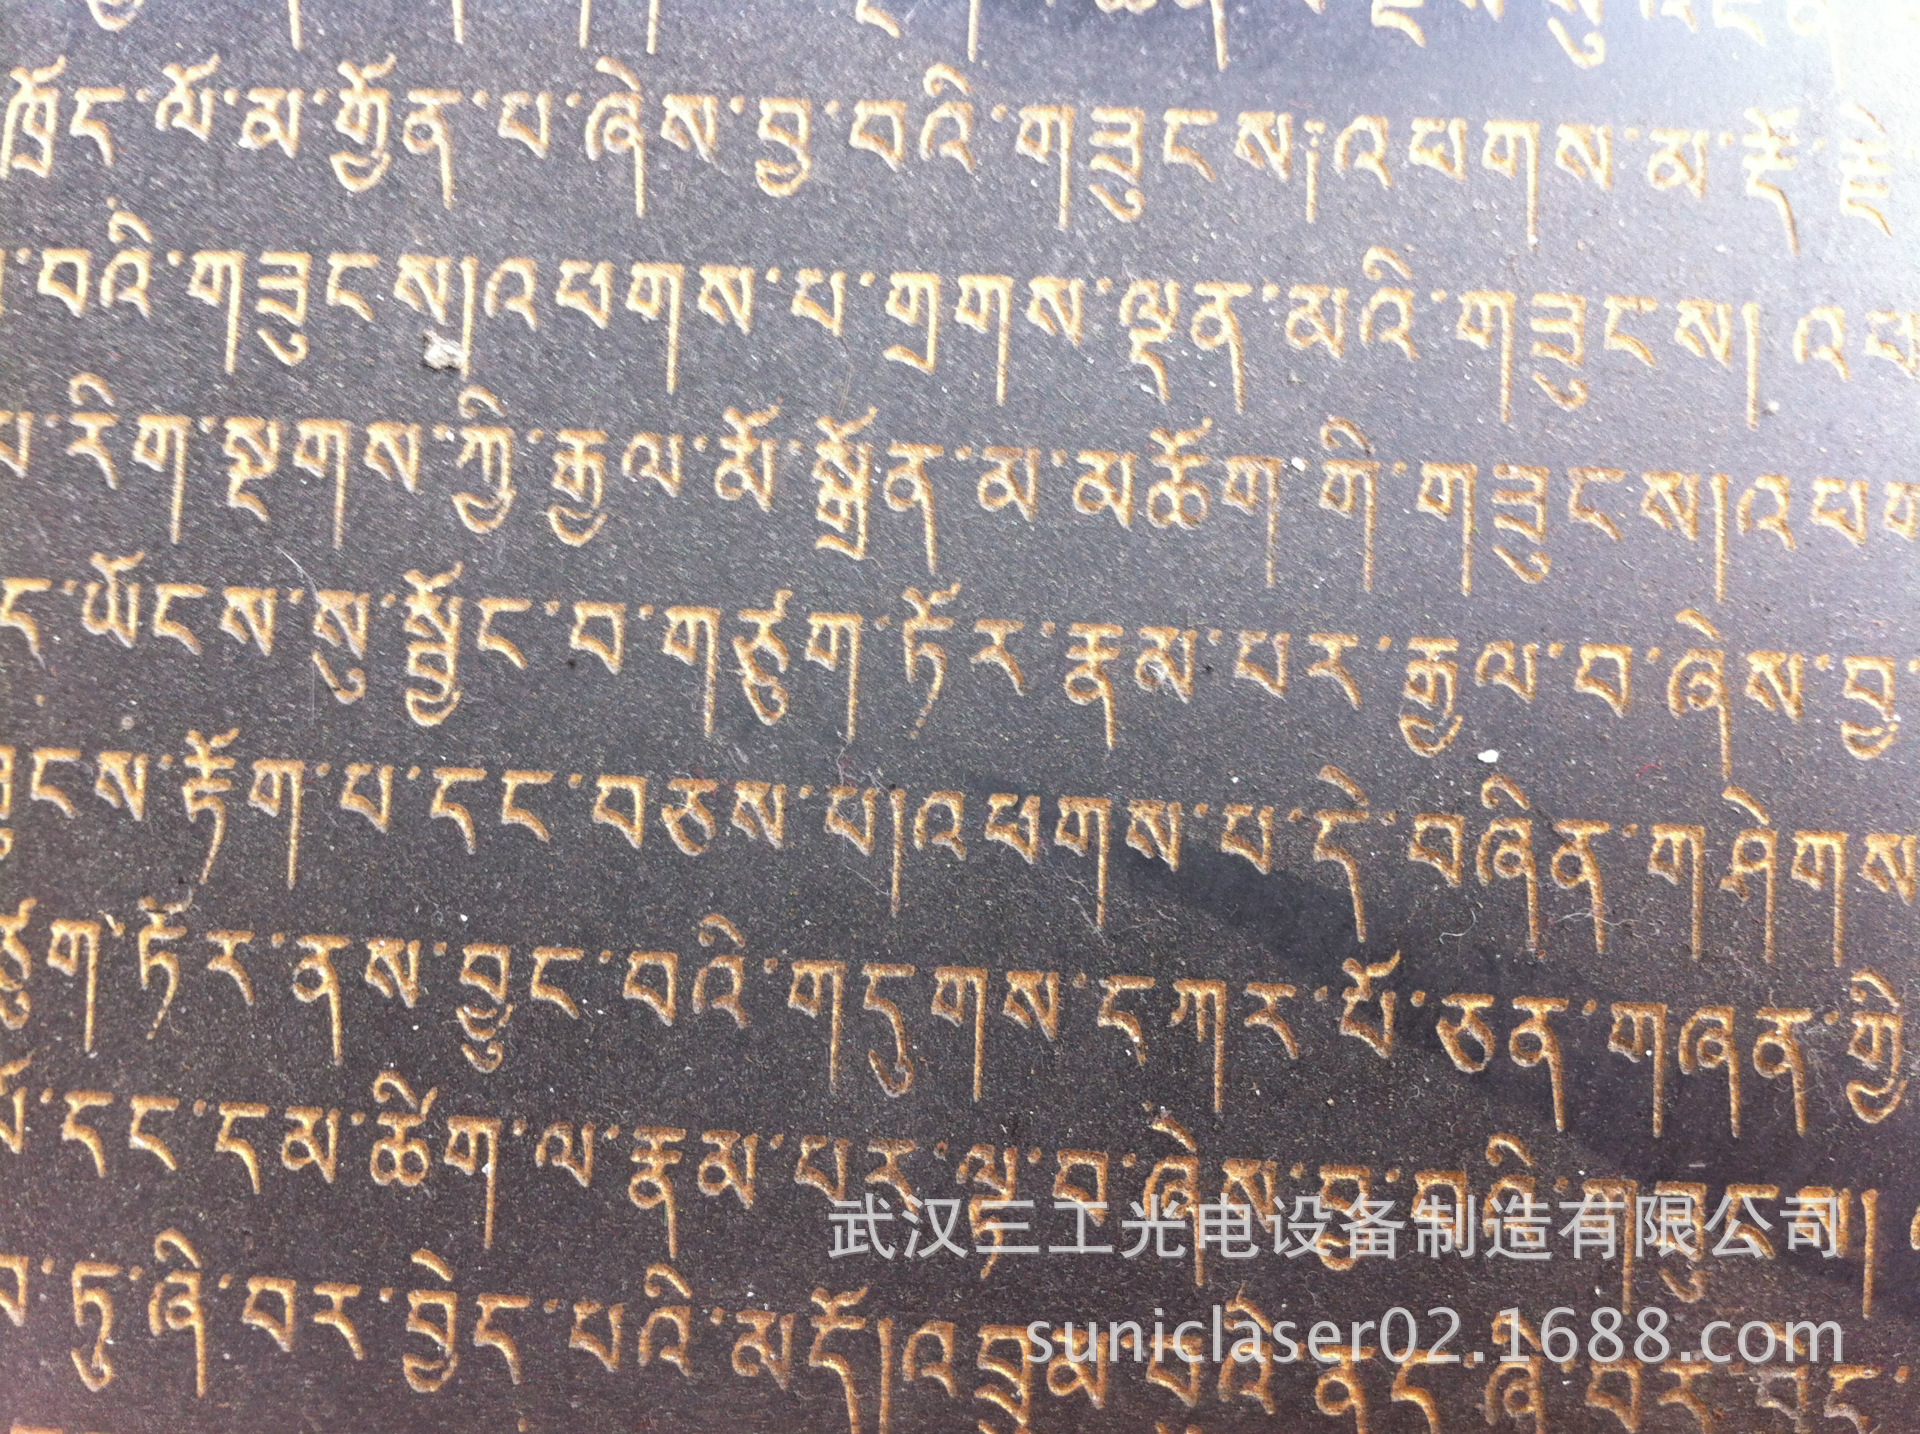 ཁྲོད་ལོ་མ་གྱོན་པ་ཞེས་བྱ་བའི་གཟུངས། འཕགས་མ་རྡོ་རྗེ
བའི་གཟུངས། འཕགས་པ་གྲགས་ལྡན་མའི་གཟུངས། འཕ
པ་རིག་སྔགས་ཀྱི་རྒྱལ་མོ་སྒྲོན་མ་མཆོག་གི་གཟུངས། འཕག
ད་ཡོངས་སུ་སྦྱོང་བ་གཙུག་ཏོར་རྣམ་པར་རྒྱལ་བ་ཞེས་བྱ
གཟུངས་རྟོག་པ་དང་བཅས་པ། འཕགས་པ་དེ་བཞིན་གཤེགས
ཙུག་ཏོར་ནས་བྱུང་བའི་གདུགས་དཀར་པོ་ཅན་གཞན་གྱི
པོ་དང་དམ་ཚིག་ལ་རྣམ་པར་ལྟ་བ་ཞེས་བྱ་བའི་གཟུངས།
བ་ཏུ་ཞི་བར་བྱེད་པའི་མདོ། འབྲུམ་པའི་ནད་ཞི་བར་བྱེད་
武汉三工光电设备制造有限公司
suniclaser02.1688.com